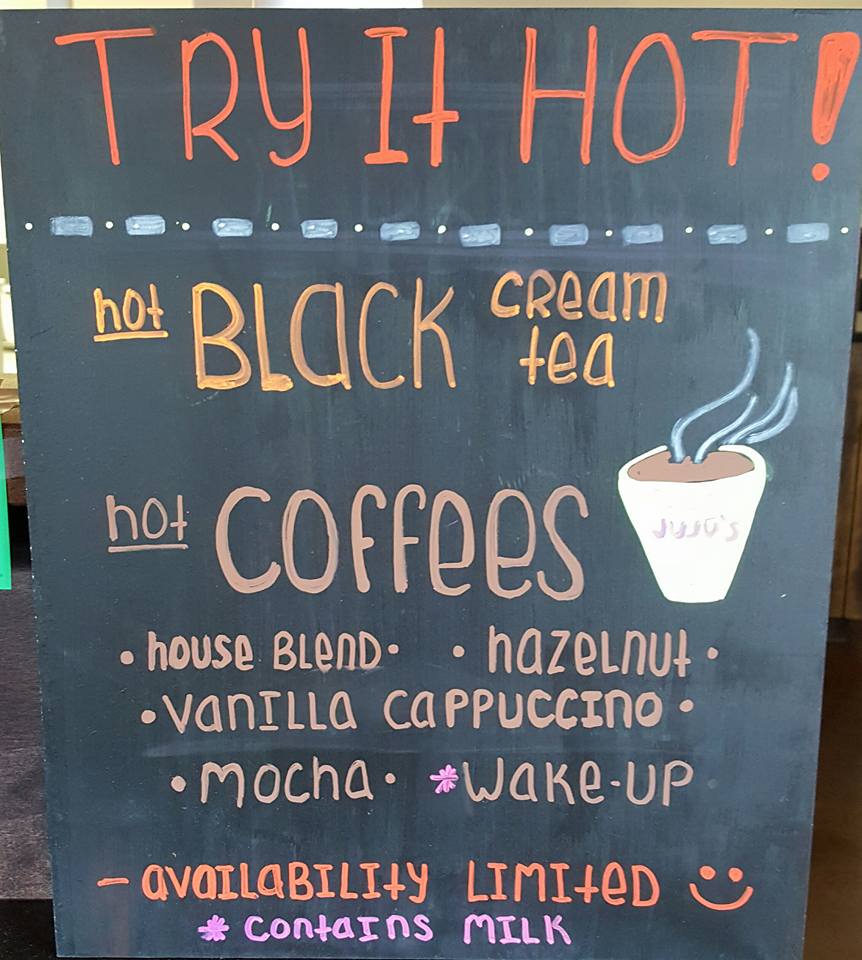 TRY It HOT!
hot BLaCK CReam tea
hot COffees
JUJU'S
• house BLenD • • hazeLnut •
• VanILLa CaPPUCCIno •
• mocha • *Wake-UP
- avaILaBILIty LIMIteD
* ContaIns MILK